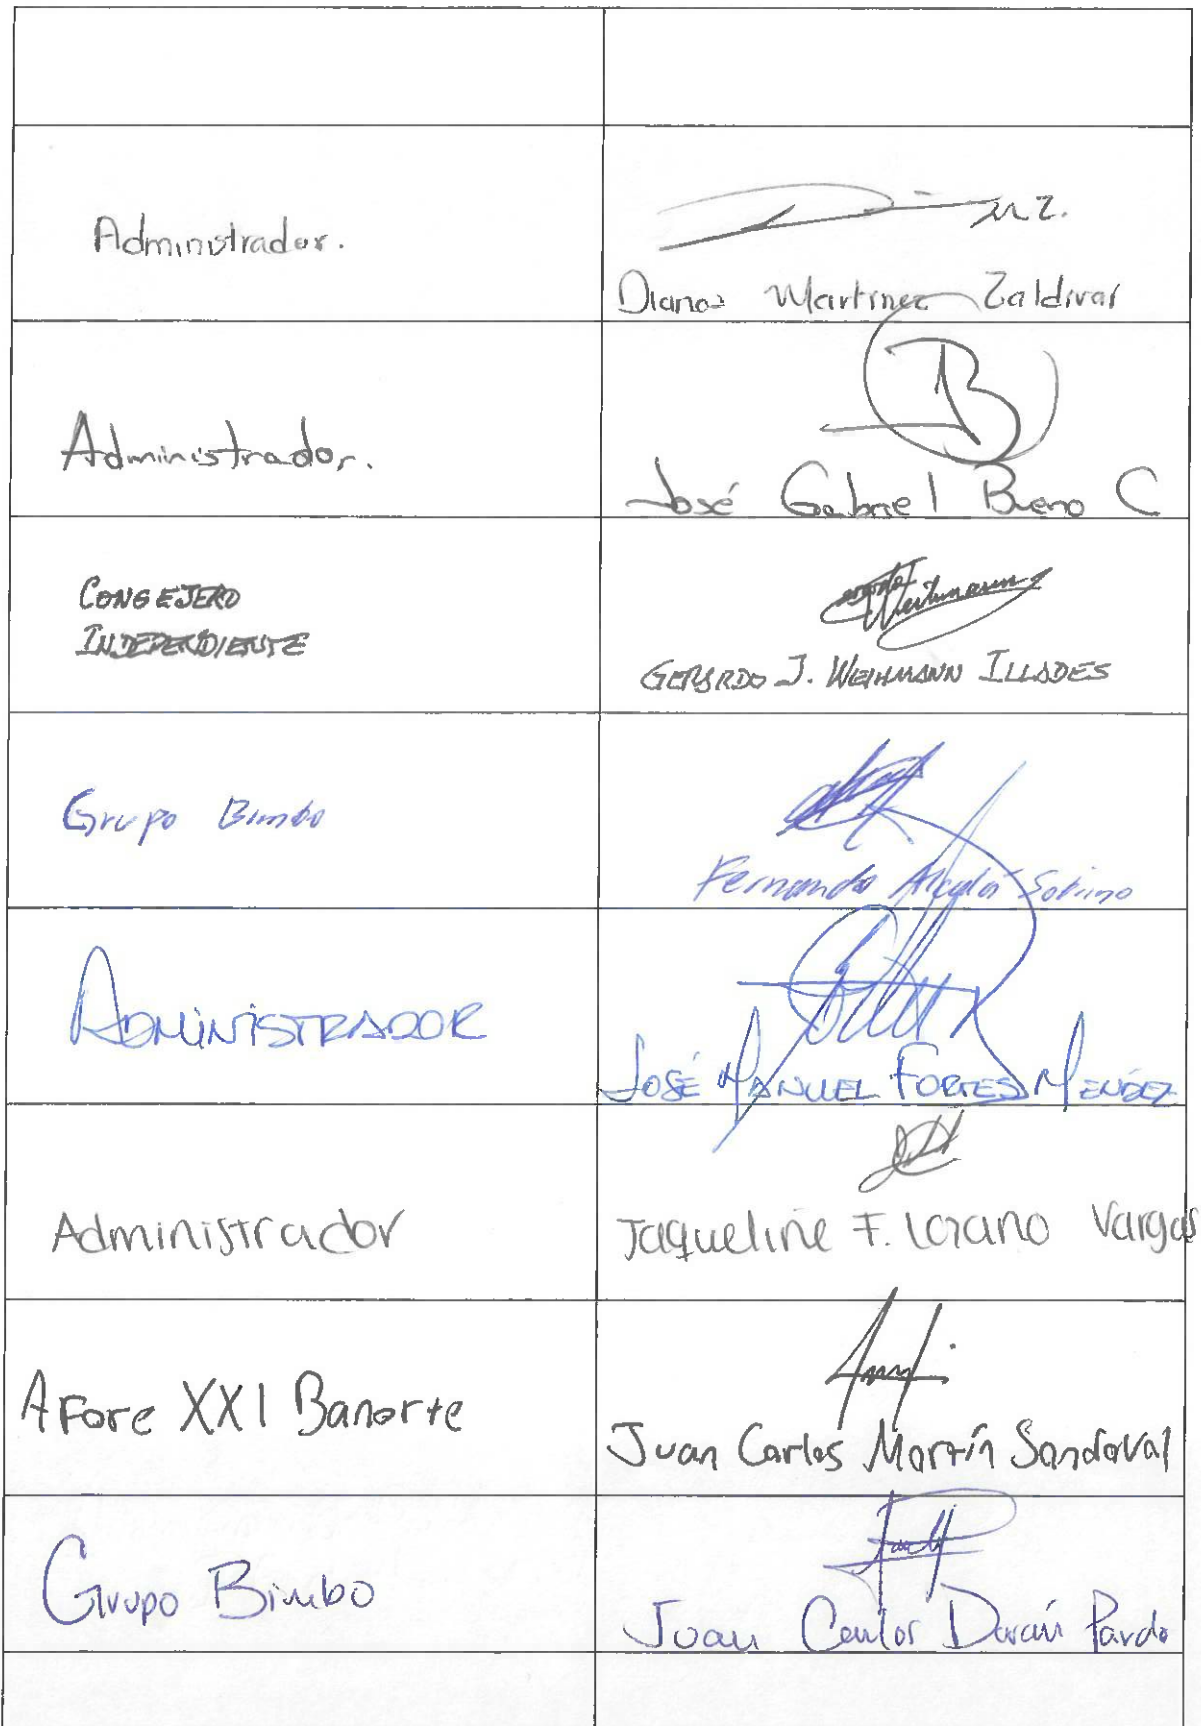 Administrador.
M Z.
Diana Martinez Zaldivar
Administrador.
B
José Gabriel Bueno C
CONSEJERO
INDEPENDIENTE
Weihmann
GERARDO J. WEIHMANN ILLADES
Grupo Bimbo
Fernando Alcalá Sobrino
ADMINISTRADOR
JOSÉ MANUEL FORTES MENDEZ
Administrador
Jaqueline F. Lozano Vargas
Afore XXI Banorte
Juan Carlos Martín Sandoval
Grupo Bimbo
Juan Carlos Durán Pardo